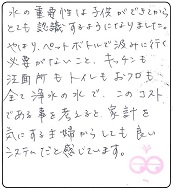 水の重要性は子供ができてから
とても認識するようになりました。
やはり、ペットボトルで汲みに行く
必要がないこと、キッチンも
洗面所もトイレもおフロも
全て浄水の水で、このコスト
である事を考えると、家計を
気にする主婦からしても良い
システムだと感じています。